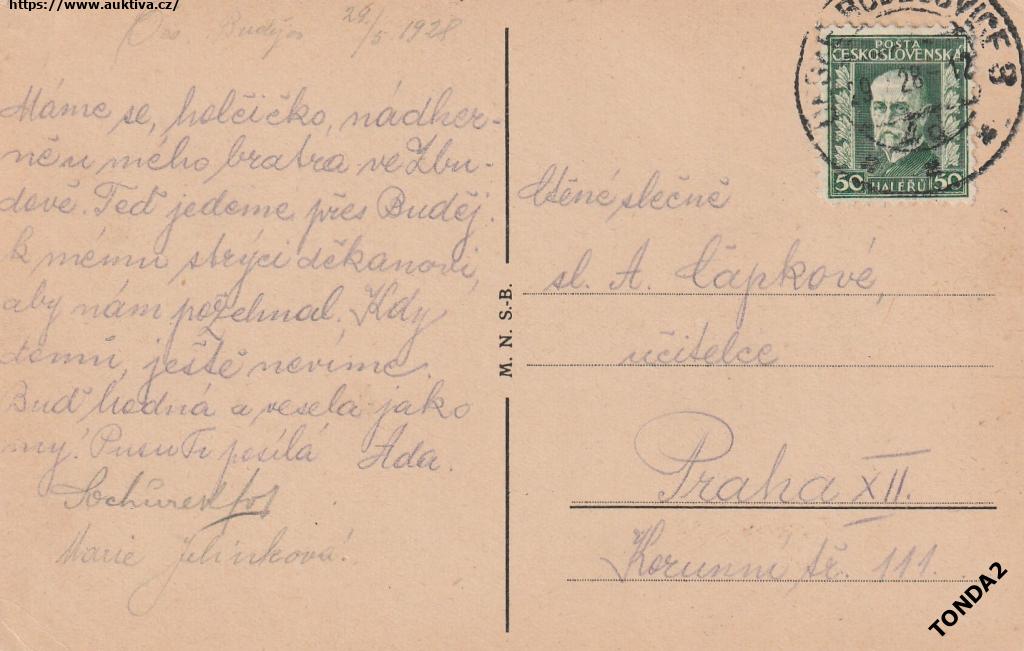 https://www.auktiva.cz/
Budějov. 29./5. 1928
Máme se, holčičko, nádher-
ně u mého bratra ve Zbu-
dově. Teď jedeme přes Buděj.
k mému strýci děkanovi,
aby nám požehnal. Kdy
domů, ještě nevíme.
Buď hodná a veselá jako
my! Pusu Ti posílá Ada.
Sochůrek
Marie Jelínková!
M. N. S.-B.
POSTA
ČESKOSLOVENSKÁ
50 HALÉŘŮ 50
Ctěné slečně
sl. A. Čapkové,
učitelce
Praha XII.
Korunní tř. 111.
TONDA2